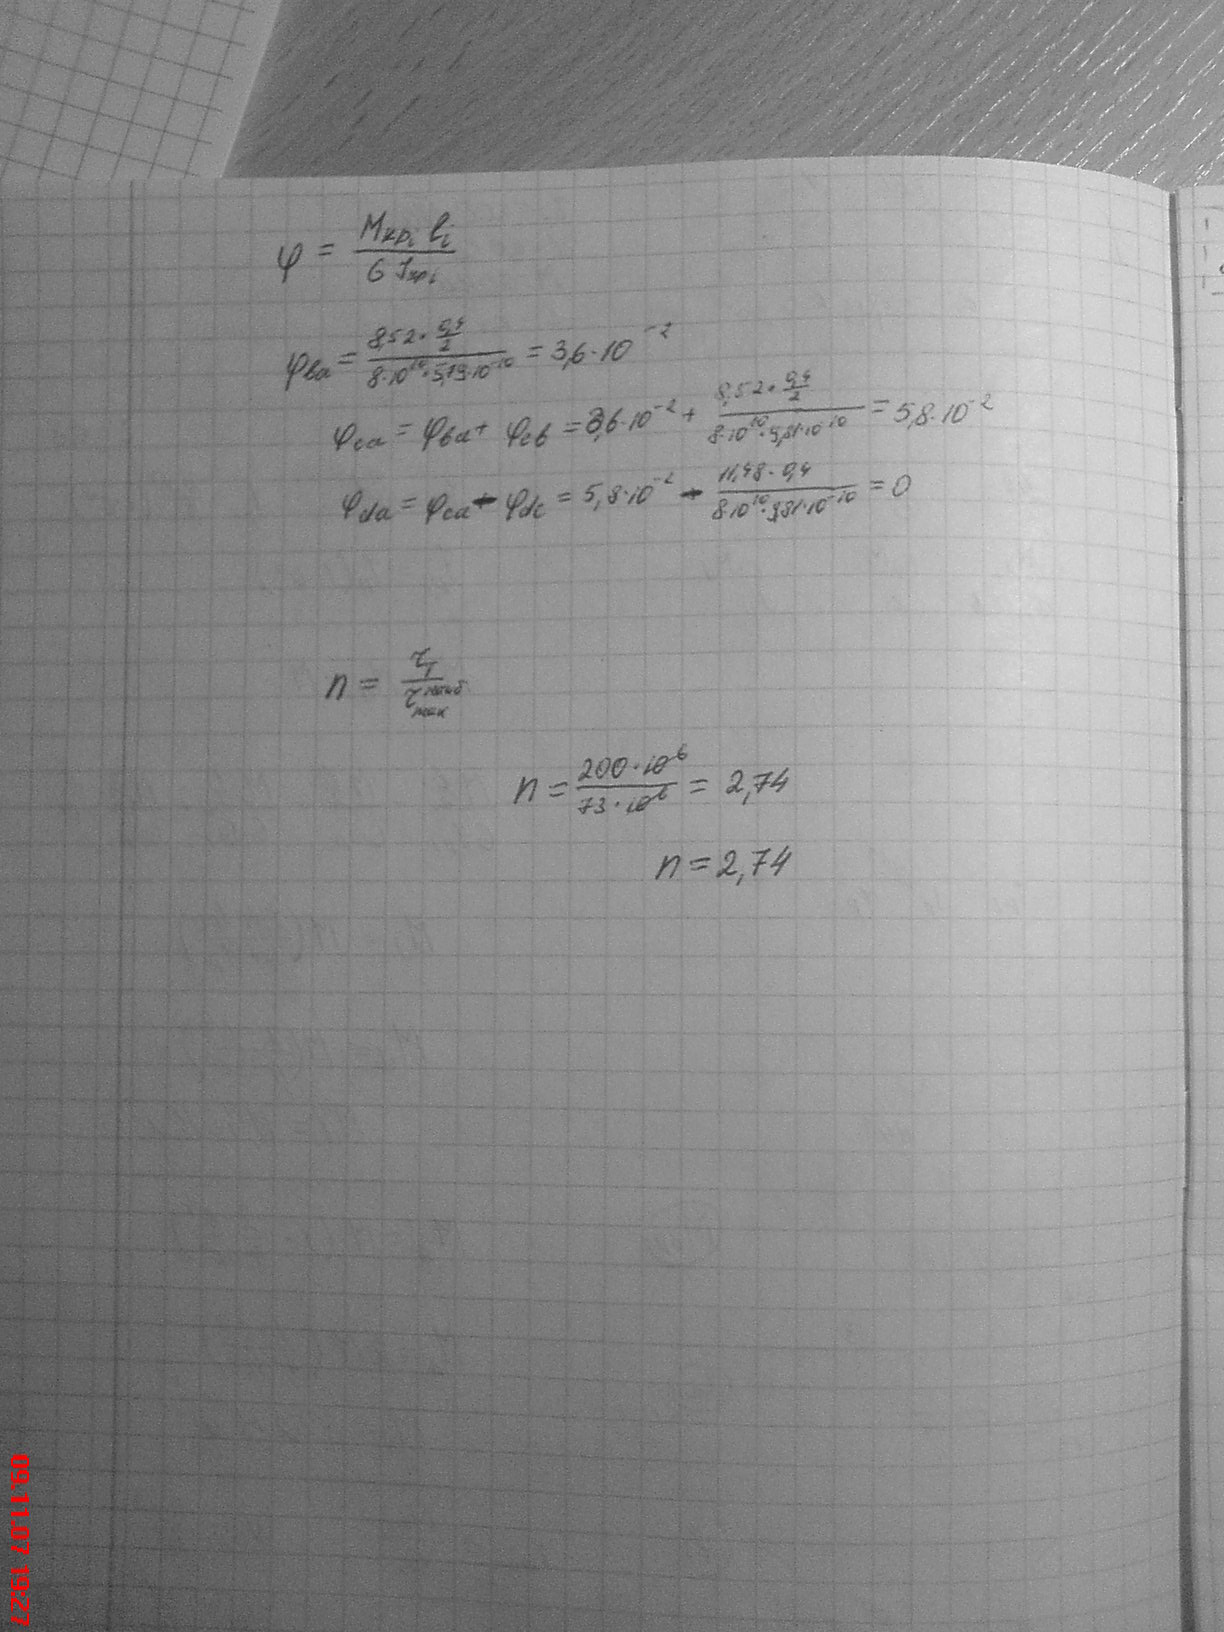 φ = Mкрi li / G Jкрi
φва = 8,52 · 0,4/2 / 8·10¹⁰·5,79·10⁻¹⁰ = 3,6·10⁻²
φса = φва + φсв = 3,6·10⁻² + 8,52 · 0,4/2 / 8·10¹⁰·9,81·10⁻¹⁰ = 5,8·10⁻²
φda = φca - φdc = 5,8·10⁻² - 11,48 · 0,4 / 8·10¹⁰·9,81·10⁻¹⁰ = 0
n = τт / τ наиб мак
n = 200·10⁶ / 73·10⁶ = 2,74
n = 2,74
09.11.07 19:27